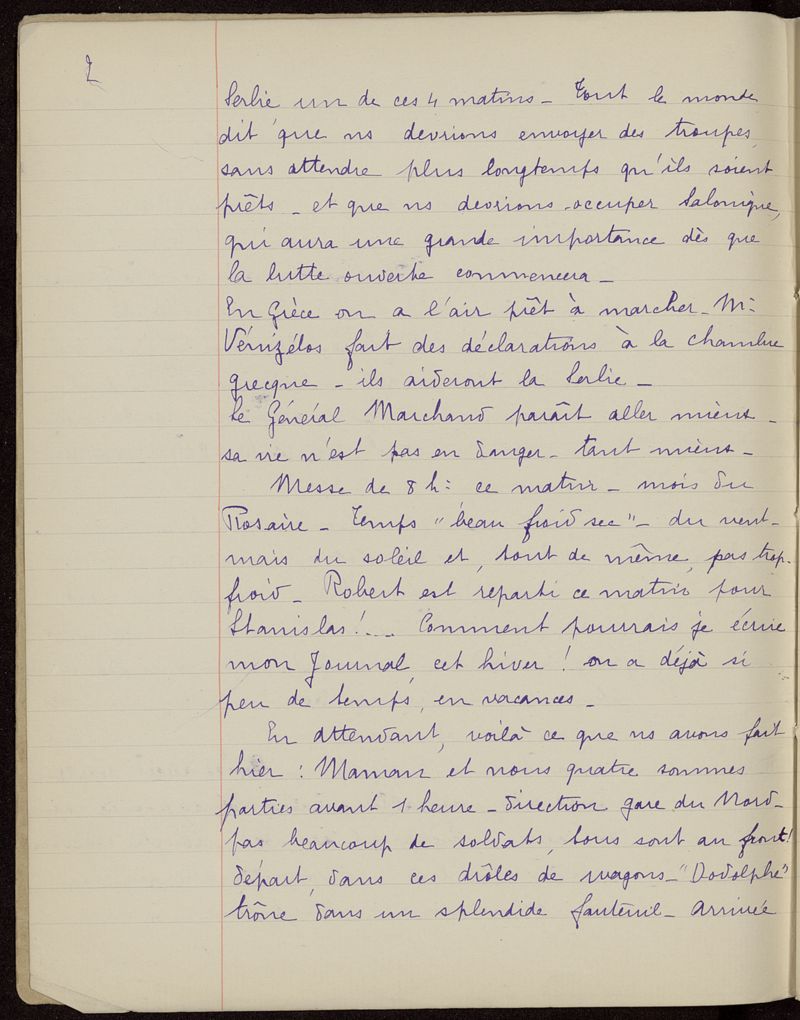 2
Serbie un de ces 4 matins _ Tout le monde
dit que ns devrions envoyer des troupes,
sans attendre plus longtemps qu'ils soient
prêts _ et que ns devrions occuper Salonique,
qui aura une grande importance dès que
la lutte ouverte commencera _
En Grèce on a l'air prêt à marcher _ Mr
Vénizélos fait des déclarations à la chambre
grecque _ ils aideront la Serbie _
Le Général Marchand paraît aller mieux _
sa vie n'est pas en danger _ tant mieux _
Messe de 8 h: ce matin _ mois du
Rosaire _ Temps "beau froid sec" _ du vent _
mais du soleil et, tout de même, pas trop
froid _ Robert est reparti ce matin pour
Stanislas! ... Comment pourrais je écrire
mon Journal, cet hiver ! on a déjà si
peu de temps, en vacances _
En attendant, voilà ce que ns avons fait
hier : Maman et nous quatre sommes
parties avant 1 heure _ direction gare du Nord _
pas beaucoup de soldats, tous sont au front!
départ, dans ces drôles de wagons _ "Dodolphe"
trône dans un splendide fauteuil _ arrivée